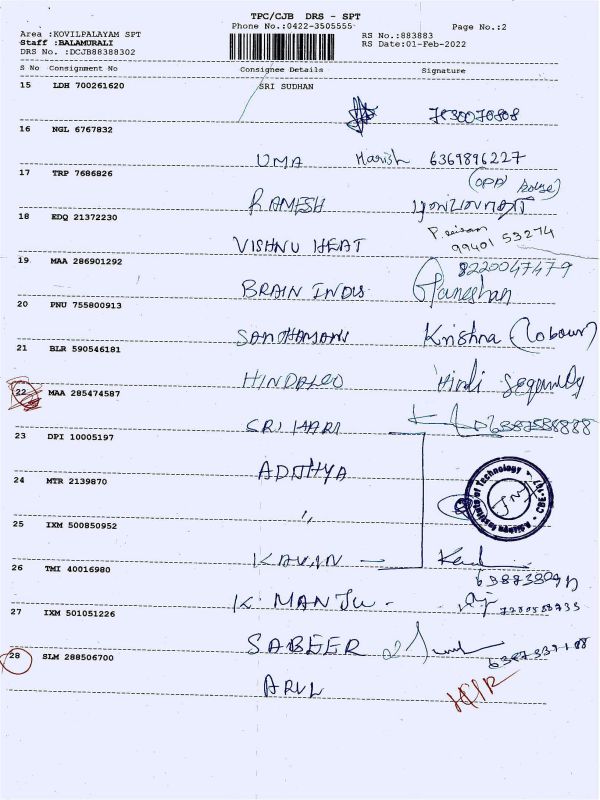 TPC/CJB DRS - SPT
Phone No.:0422-3505555
Page No.:2
Area :KOVILPALAYAM SPT
Staff :BALAMURALI
DRS No. :DCJB88388302
RS No.:883883
RS Date:01-Feb-2022
S No Consignment No Consignee Details Signature
15 LDH 700261620 SRI SUDHAN
7830070808
16 NGL 6767832
UMA Harish 6369896227
17 TRP 7686826
(OPP house)
RAMESH
18 EDQ 21372230
VISHNU HEAT
99401 53274
19 MAA 286901292
8220047479
BRAIN INDUS Ganeshan
20 PNU 755800913
Krishna (
21 BLR 590546181
HINDALCO Hindi
22 MAA 285474587
SRI HARI
23 DPI 10005197
ADITHYA
24 MTR 2139870
Institute of Technology
CBE-107
25 IXM 500850952
KAVIN
26 TMI 40016980
K. MANJU -
27 IXM 501051226
SABEER
28 SLM 288506700
ARUL